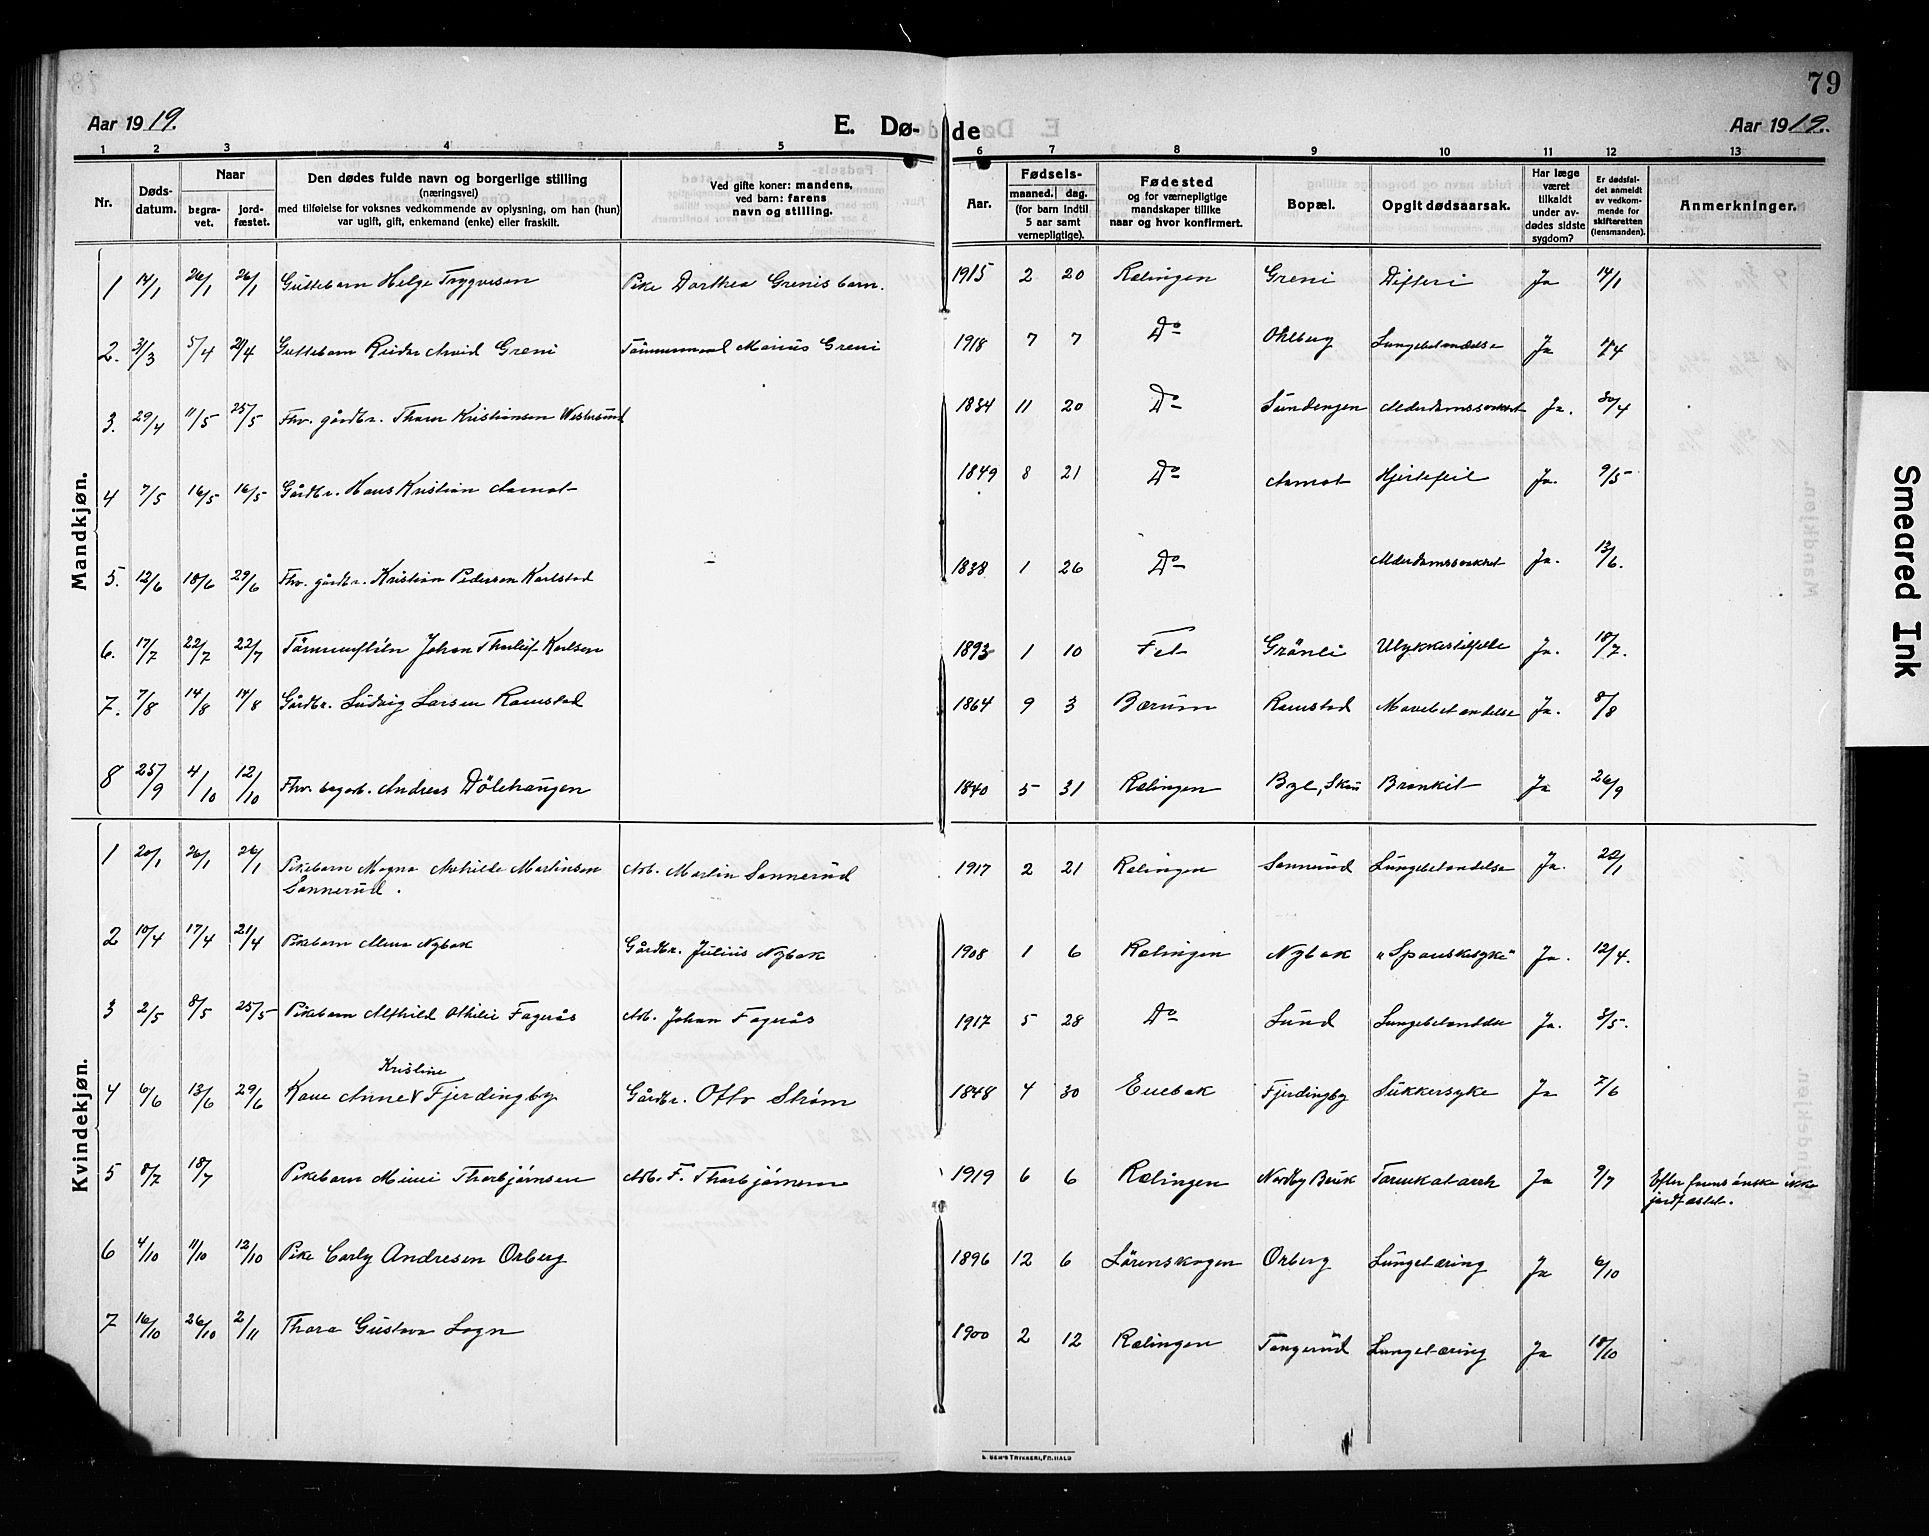 79
Aar 1919.
E. Dø-
de
Aar 1919.
1 2 3 4 5 6 7 8 9 10 11 12 13
Nr.
Døds-
datum.
Naar
begra-
vet.
jord-
fæstet.
Den dødes fulde navn og borgerlige stilling
(næringsvei)
med tilføielse for voksnes vedkommende av oplysning, om han (hun)
var ugift, gift, enkemand (enke) eller fraskilt.
Ved gifte koner: mandens,
ved barn: farens
navn og stilling.
Aar.
Fødsels-
maaned. dag.
(for barn indtil
5 aar samt
vernepligtige).
Fødested
og for værnepligtige
mandskaper tillike
naar og hvor konfirmert.
Bopæl.
Opgit dødsaarsak.
Har læge
været
tilkaldt
under av-
dødes sidste
sygdom?
Er dødsfal-
det anmeldt
av vedkom-
mende for
skifteretten
(lensmanden).
Anmerkninger.
Mandkjøn.
1 14/1 26/1 26/1 Guttebarn Helge Trygvesen Pike Dorthea Grenis barn. 1915 2 20 Rælingen Greni Difteri Ja 14/1
2. 31/3 5/4 21/4 Guttebarn Reidar Arvid Greni Tömmermand Marius Greni 1918 7 7 Do Ohlberg Lungebetændelse Ja
3. 29/4 11/5 25/5 Fhv. gårdbr. Thorer Kristiansen Westersund 1834 11 20 Do Sundengen Alderdomssvakhet Ja. 30/4
4 7/5 16/5 16/5 Gårdbr. Hans Kristian Aamot 1849 8 21 Do Aamot Hjertefeil Ja. 9/5
5. 12/6 18/6 29/6 Fhv. gårdbr. Kristian Pedersen Karlstad 1838 1 26 Do Alderdomssvakhet Ja. 13/6.
6. 17/7 22/7 22/7 Johan Thorleif Karlsen 1893 1 10 Fet Grönli Ulykkestilfelde Ja. 18/7.
7. 7/8 14/8 14/8 Gårdbr. Ludvig Larsen Ramstad 1864 9 3 Bærum Ramstad Mavebetændelse Ja. 8/8
8 25/9 4/10 12/10 Fhv. Andreas Dölehaugen 1840 5 31 Rælingen Bronkit Ja 26/9
Kvindekjøn.
1 20/1 26/1 26/1 Pikebarn Magna Mathilde Martinsen Arb. Martin Sannerud 1917 2 21 Rælingen Sannerud Lungebetændelse Ja. 20/1
Sannerud.
2 10/4 17/4 21/4 Pikebarn Nybak Gårdbr. Julius Nybak 1908 1 6 Rælingen Nybak "Spanskesyke" Ja. 12/4.
3 2/5 8/5 25/5 Pikebarn Alfhild Othilie Fagerås Arb. Johan Fagerås 1917 5 28 Do Lund Lungebetændelse Ja. 3/5.
Kristine
4 6/6 13/6 29/6 Kone Anne Fjerdingby Gårdbr. Otto Strøm 1848 4 30 Enebak Fjerdingby Sukkersyke Ja 7/6
5 8/7 18/7 Pikebarn Mimi Thorbjørnsen Arb. F. Thorbjørnsen 1919 6 6 Rælingen Nordby Bruk Tarmkatarrh Ja 9/7 Efter farens ønske ikke
jordfæstet.
6 4/10 11/10 12/10 Pike Carly Andresen Orberg 1896 12 6 Lörenskogen Orberg Lungetæring Ja 6/10
7 16/10 26/10 2/11 Thora Gustava Sogn 1900 2 12 Rælingen Tangerud Lungetæring Ja 18/10
Smeared Ink